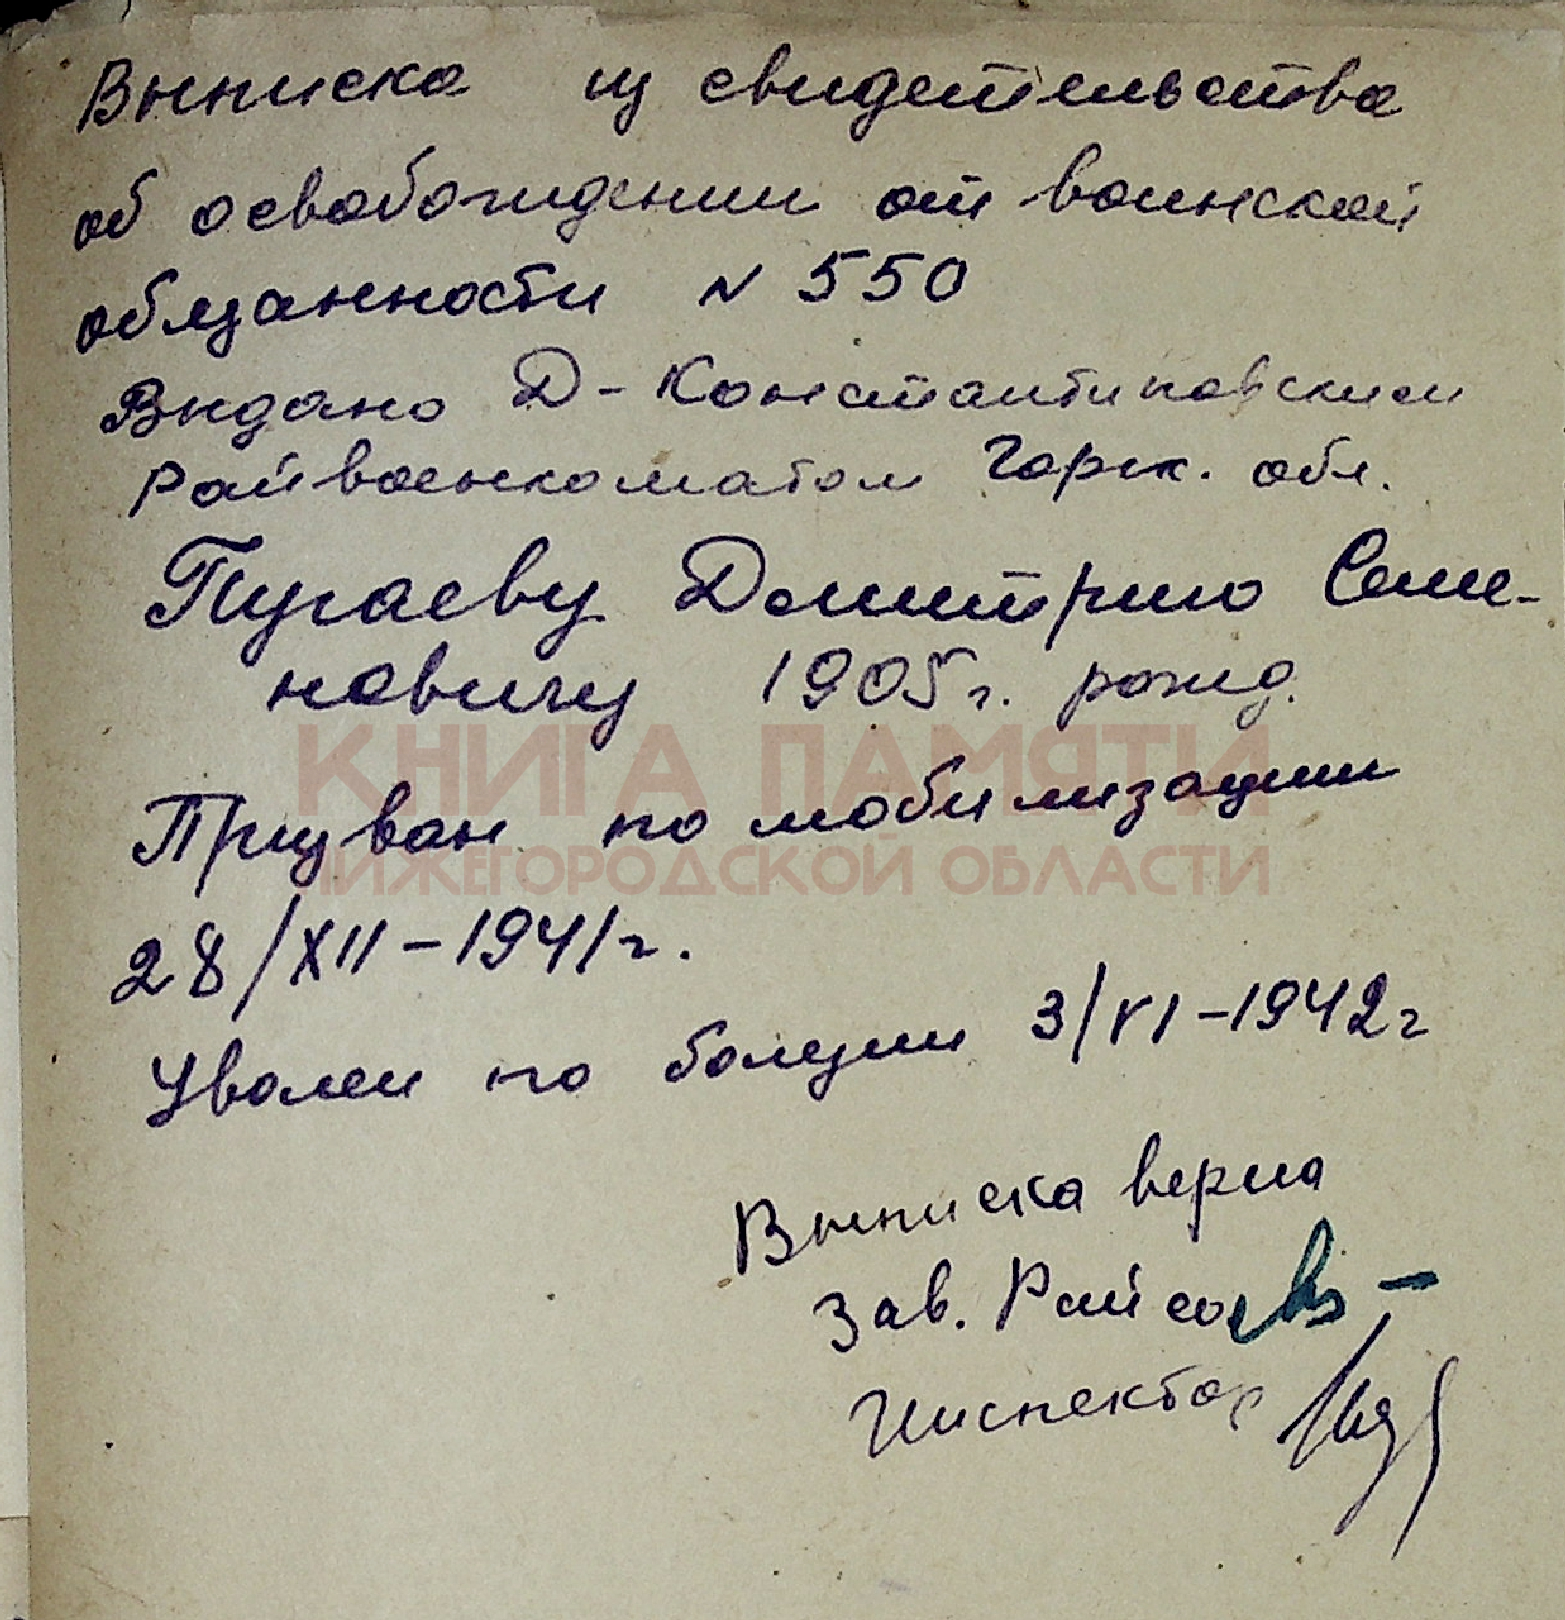 Выписка из свидетельства
об освобождении от воинской
обязанности N 550
Выдано Д-Константиновским
Райвоенкоматом Горьк. обл.
Пугаеву Дмитрию Семе-
новичу 1905 г. рожд.
КНИГА ПАМЯТИ
Призван по мобилизации
НИЖЕГОРОДСКОЙ ОБЛАСТИ
28/XII-1941 г.
Уволен по болезни 3/VI-1942 г
Выписка верна
Зав. Райсо
Инспектор